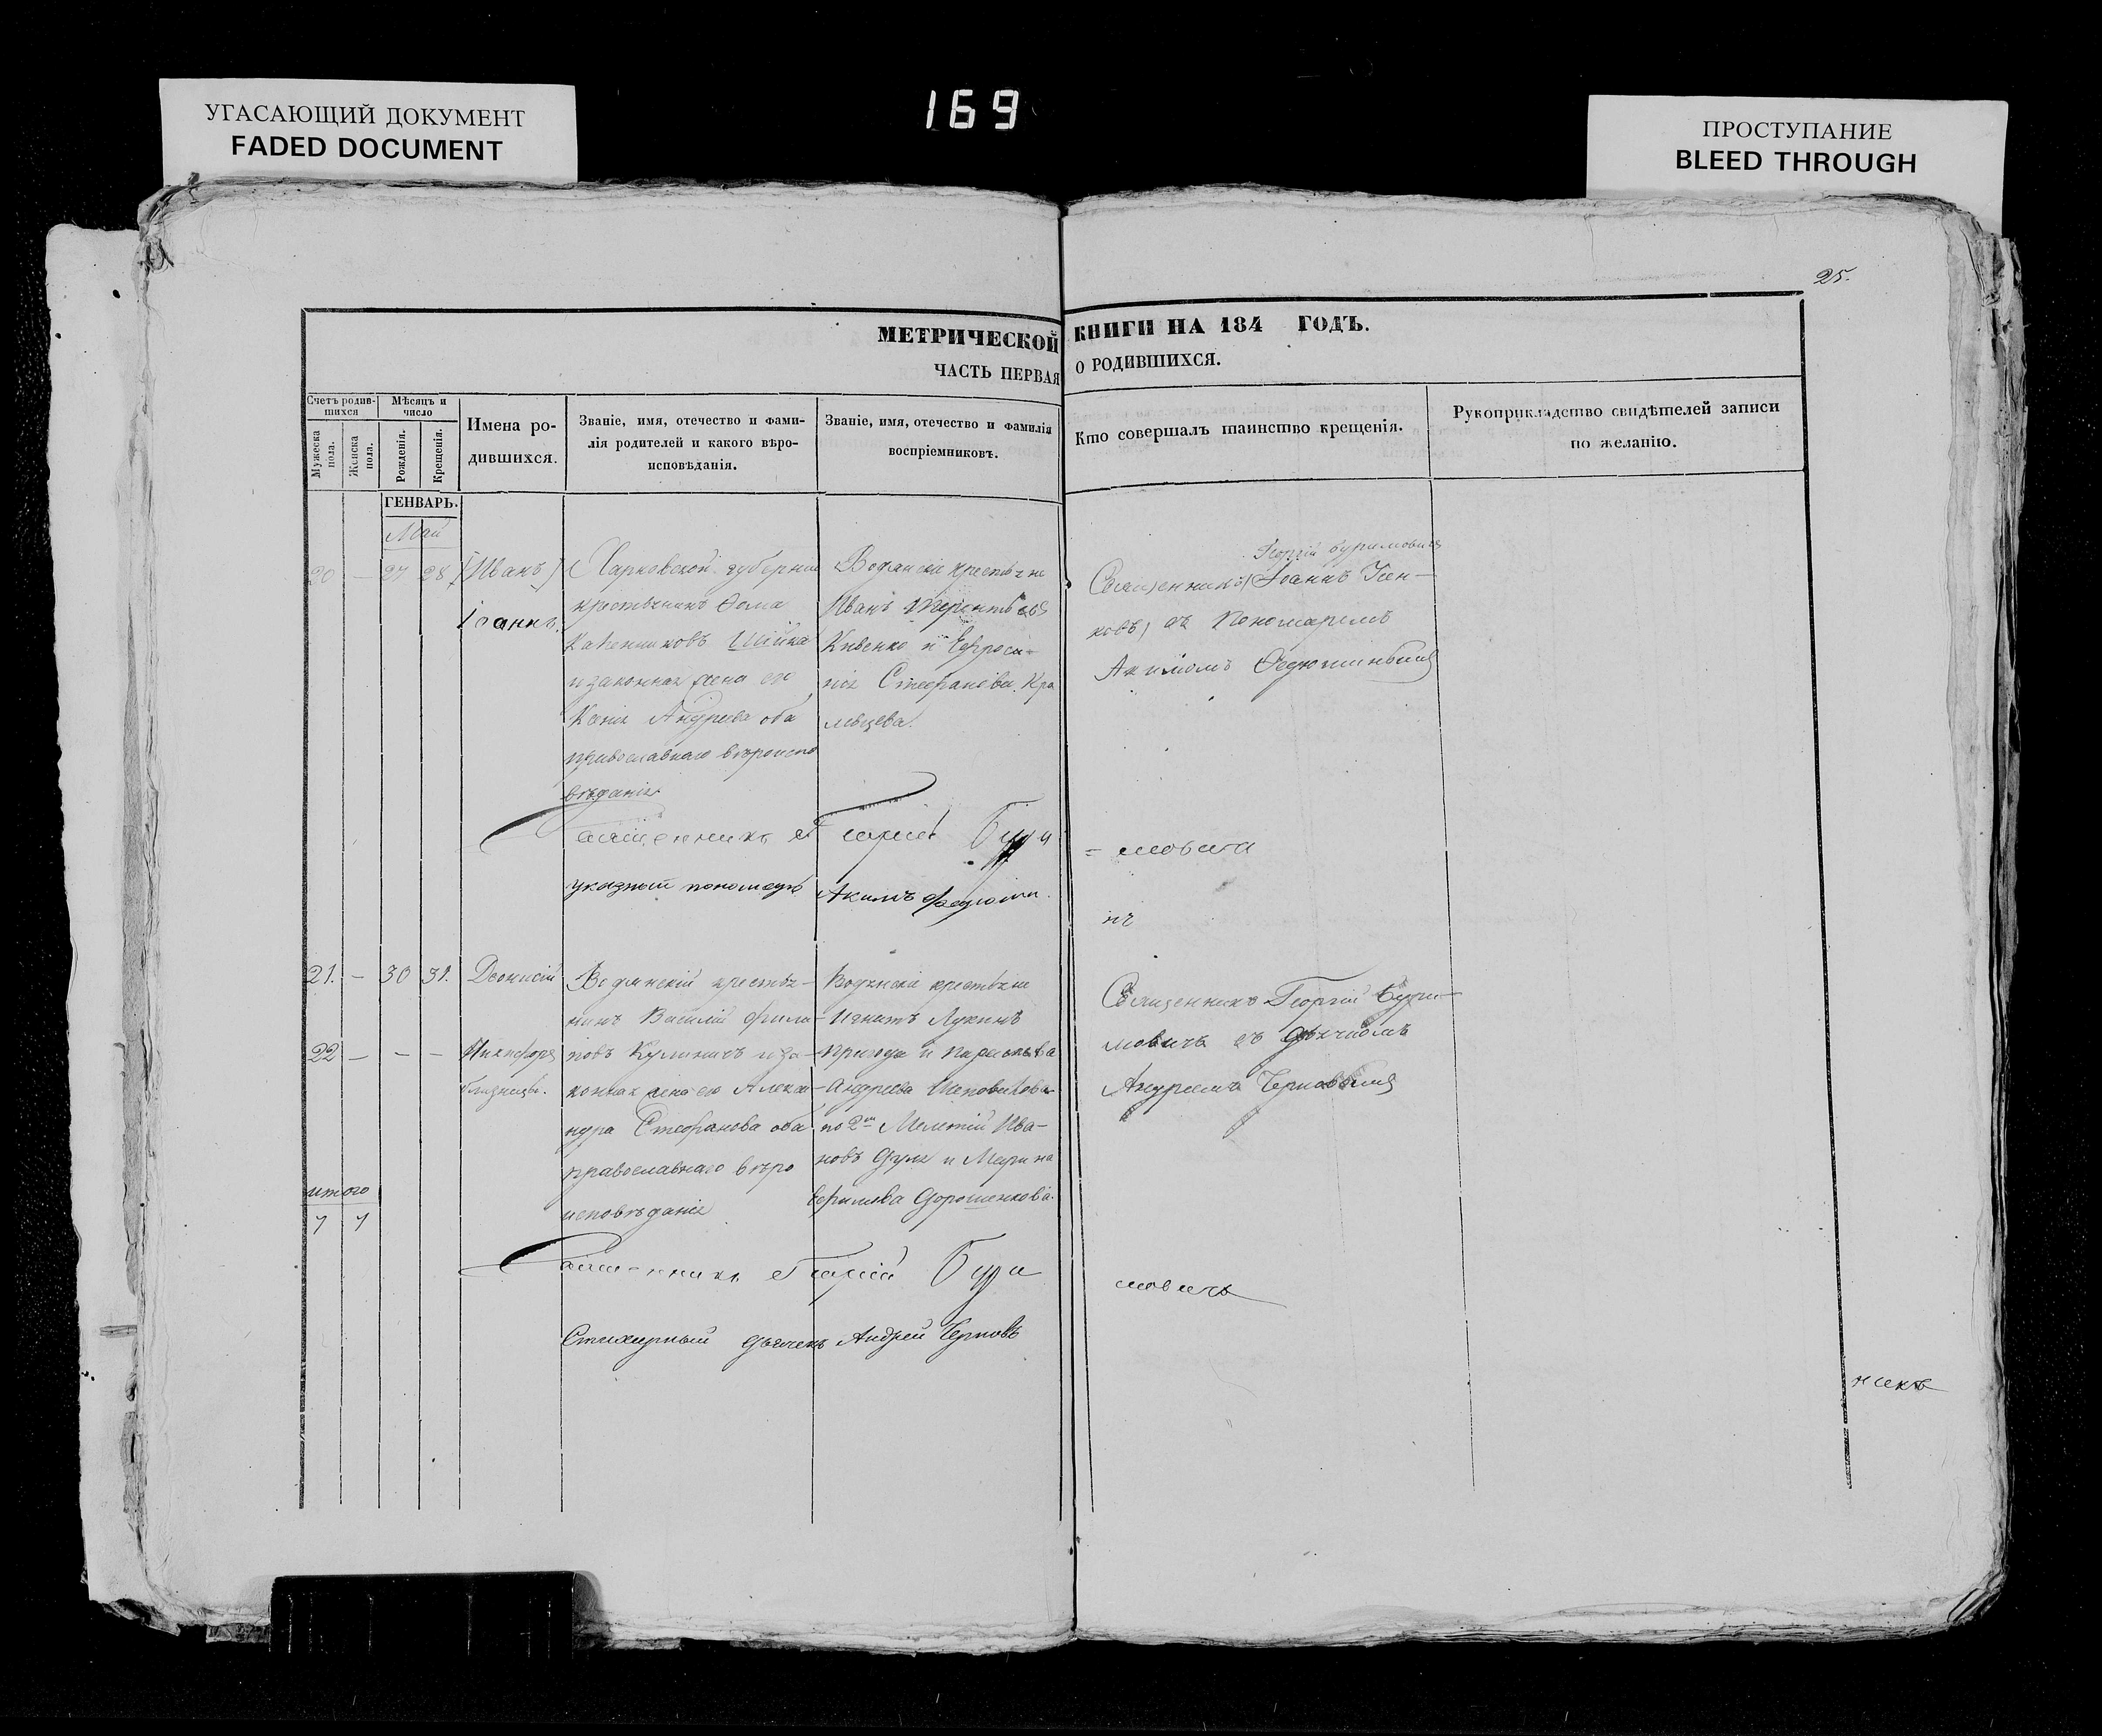 УГАСАЮЩИЙ ДОКУМЕНТ
FADED DOCUMENT
169
ПРОСТУПАНИЕ
BLEED THROUGH
25.
МЕТРИЧЕСКОЙ КНИГИ НА 184 ГОДЪ.
ЧАСТЬ ПЕРВАЯ О РОДИВШИХСЯ.
Счетъ родив-
шихся
Мужеска
пола.
Женска
пола.
Мѣсяцъ и
число
Рожденія.
Крещенія.
Имена ро-
дившихся.
Званіе, имя, отечество и фами-
лія родителей и какого вѣро-
исповѣданія.
Званіе, имя, отечество и фамилія
воспріемниковъ.
Кто совершалъ таинство крещенія.
Рукоприкладство свидѣтелей записи
по желанію.
ГЕНВАРЬ.
Май
20 — 27 28
(Иванъ)
Іоаннъ.
Харковской губерніи
крестьянинъ Фома
и законная жена его
Андреева оба
православнаго вѣроиспо
вѣданія
Иванъ
Кивенко и Ефроси-
нія Стефанова
Георгій Буримовичъ
Священникъ Іоаннъ
съ Пономаремъ
Акимомъ Федюшинымъ
Священникъ Георгій Бури
=мовичъ
указный пономарь Акимъ Федюши
нъ
21. — 30 31.
Деонисій
22 — — —
Никифоръ
близнецы.
Водянскій крестья-
нинъ Василій Фили-
повъ Куличичъ и за-
конная жена его Алекса-
ндра Стефанова оба
православнаго вѣро
исповѣданія
Водянскіе крестьяне
Игнатъ Лукинъ
Пригода и Параскева
Андреева
по 2му Мелетій Ива-
новъ Дуля и Марина
Ефимова Дорошенкова.
Священникъ Георгій Бури-
мовичъ съ дьячкомъ
Андреемъ Черновымъ
итого
7 7
Священникъ Георгій Бури
мовичъ
Стихирный дьячекъ Андрей Черновъ
никъ